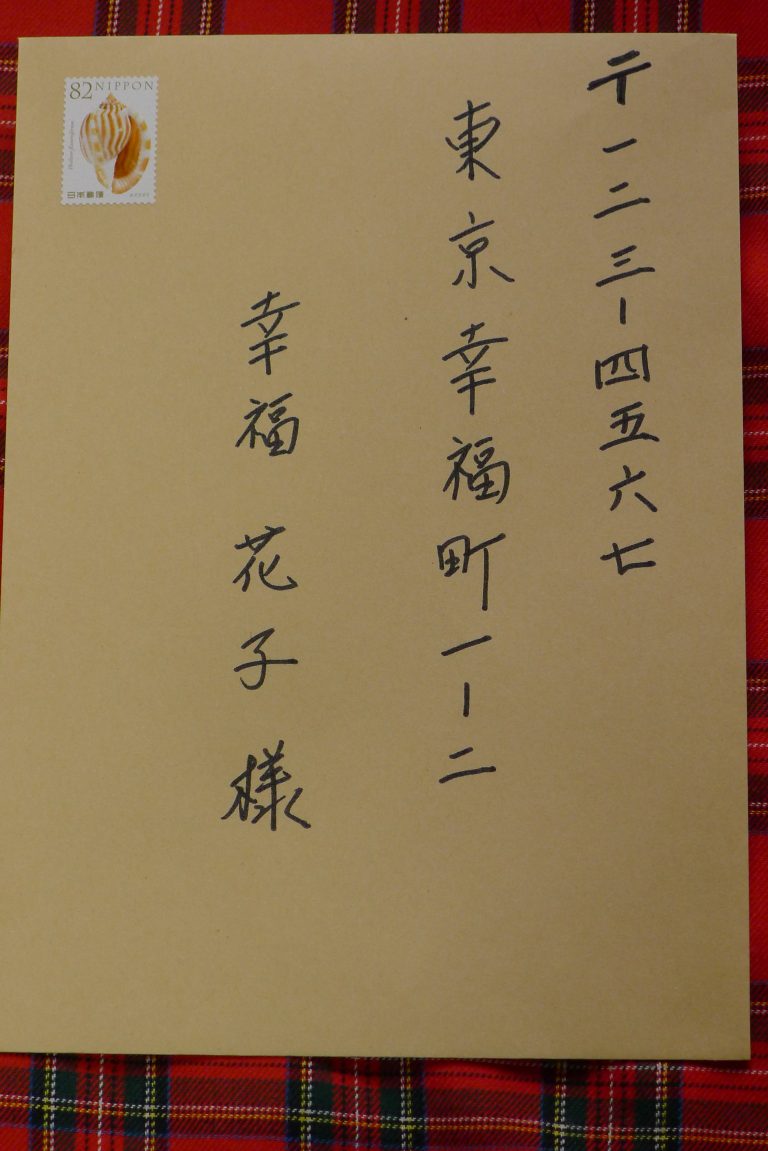 〒一二三-四五六七
東京幸福町一-二
幸福 花子 様
82 NIPPON
日本郵便